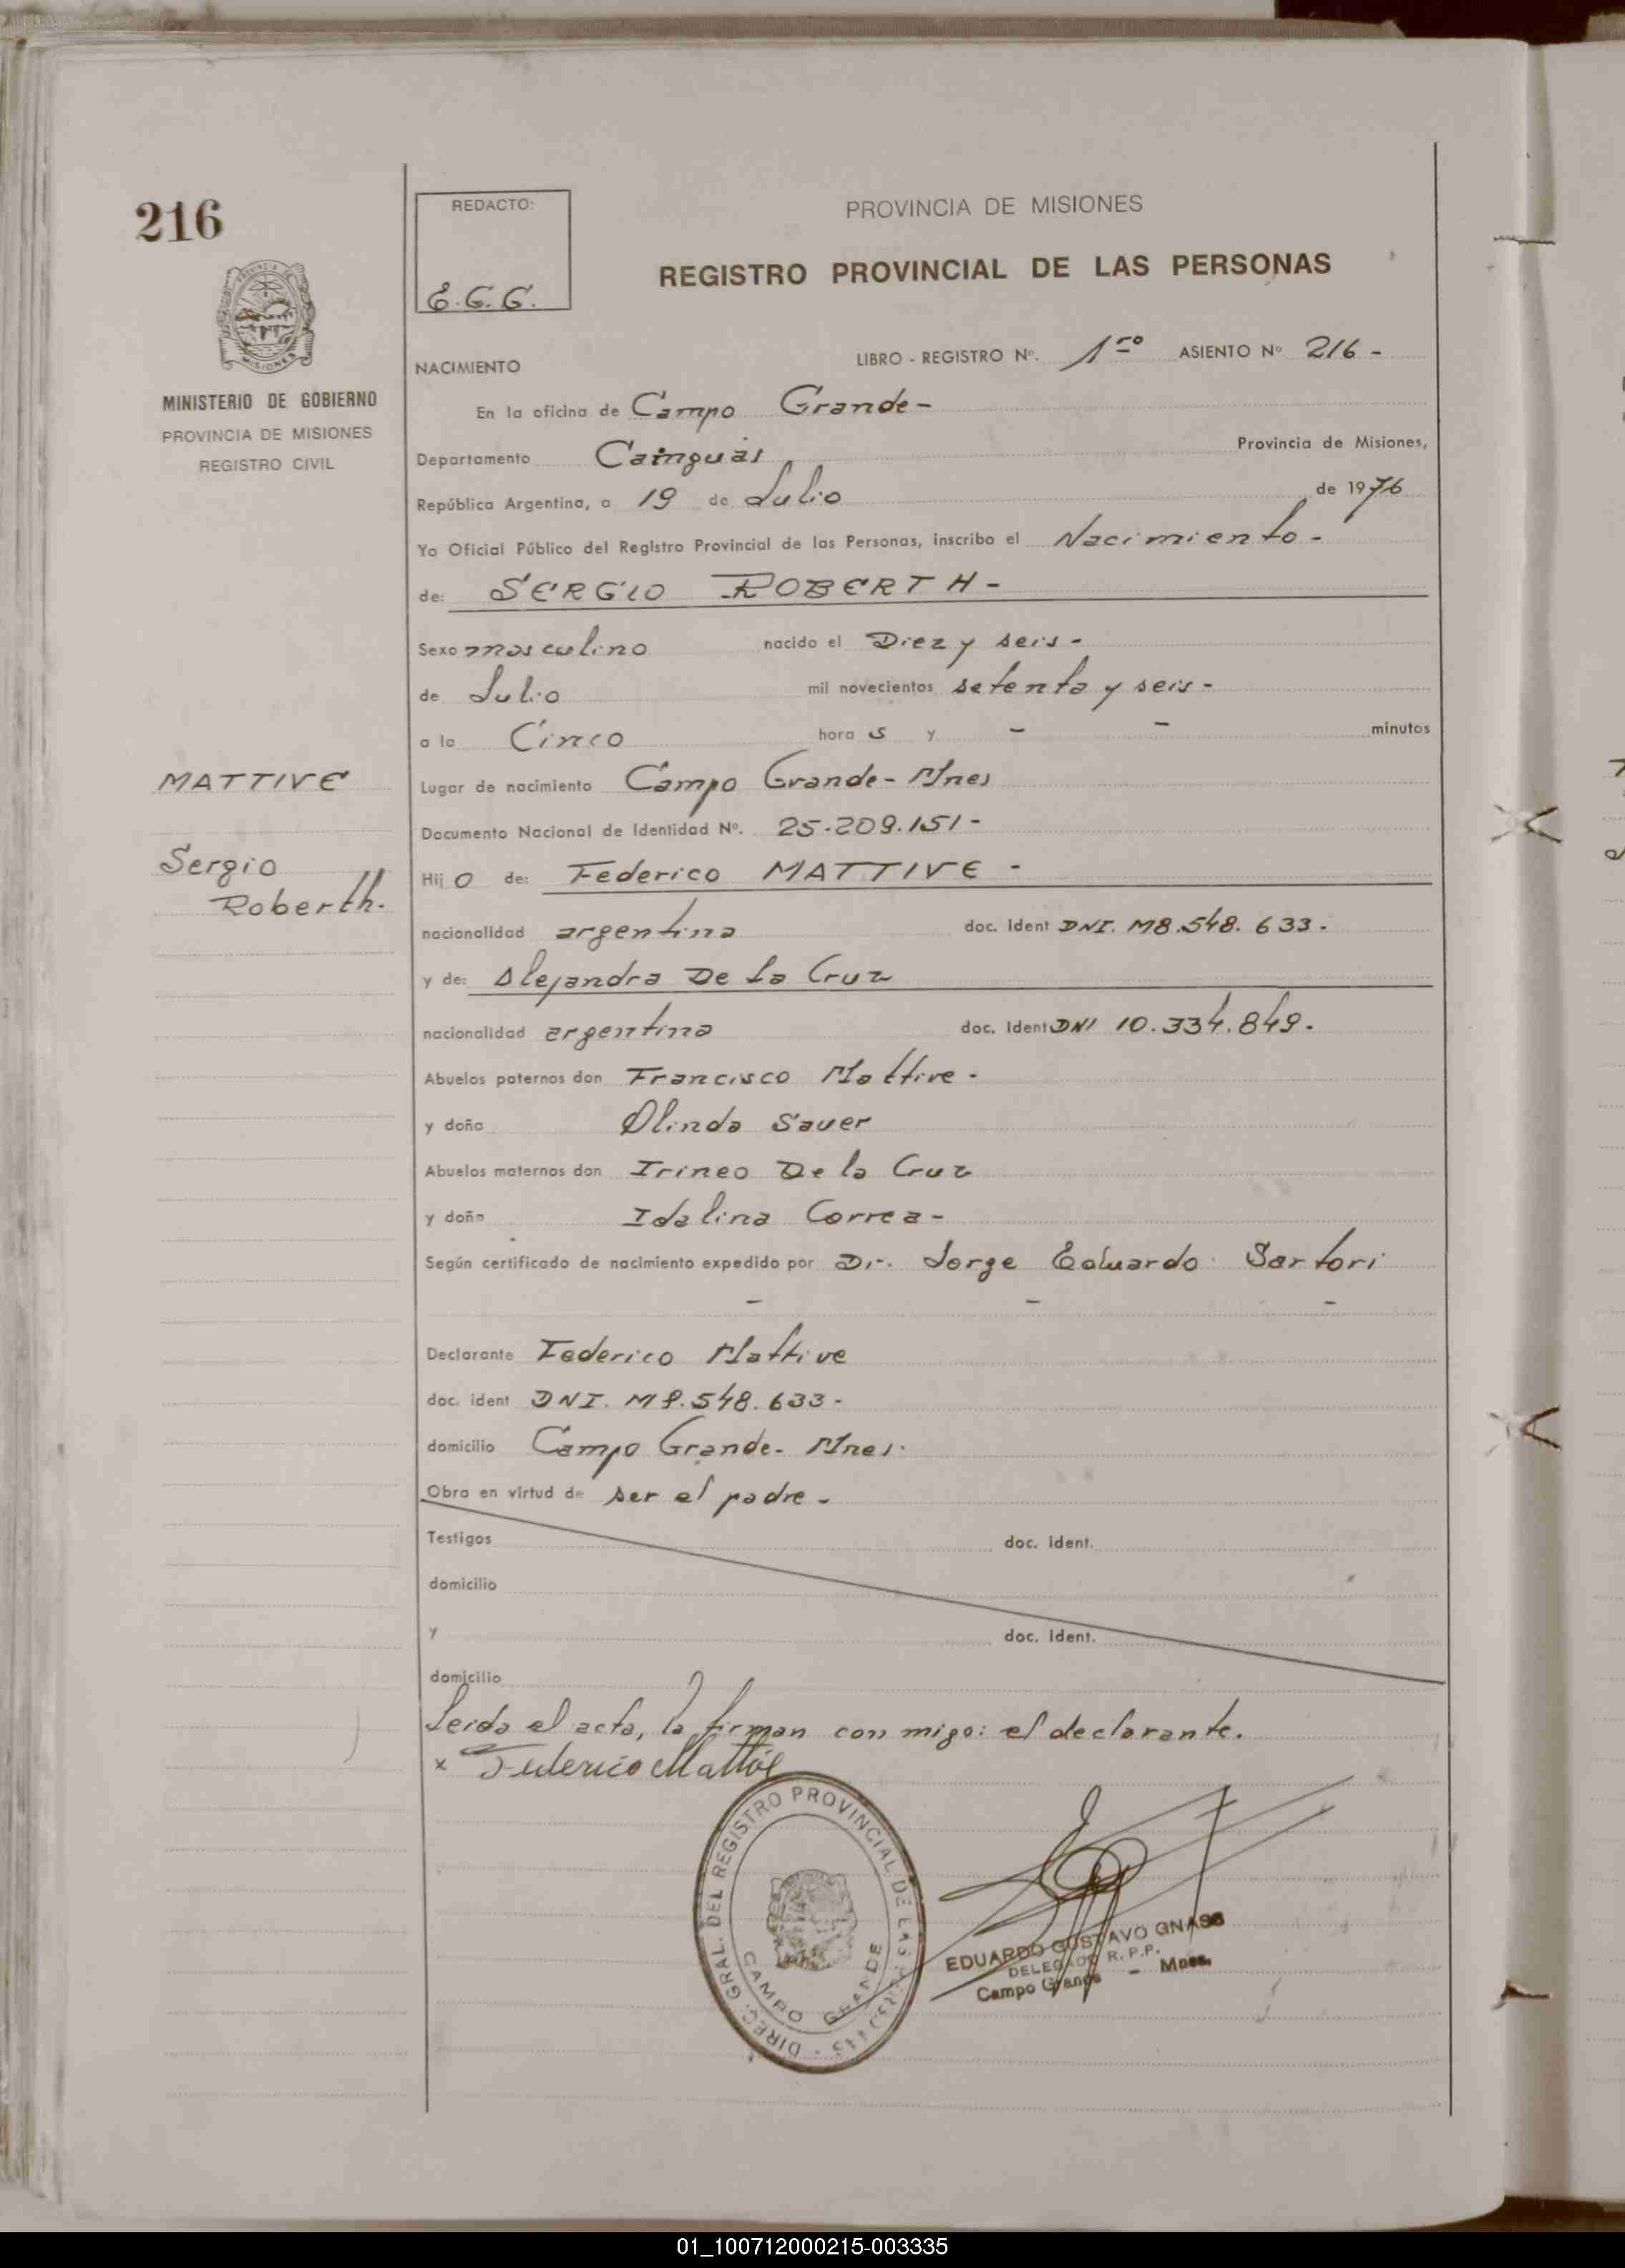 216
MINISTERIO DE GOBIERNO
PROVINCIA DE MISIONES
REGISTRO CIVIL
MATTIVE
Sergio
Roberth.
REDACTO:
E.G.G.
PROVINCIA DE MISIONES
REGISTRO PROVINCIAL DE LAS PERSONAS
NACIMIENTO LIBRO - REGISTRO Nº. 1ro ASIENTO Nº 216 -
En la oficina de Campo Grande -
Departamento Cainguás Provincia de Misiones,
República Argentina, a 19 de Julio de 1976
Yo Oficial Público del Registro Provincial de las Personas, inscribo el Nacimiento -
de: SERGIO ROBERTH -
Sexo masculino nacido el Diez y seis -
de Julio mil novecientos setenta y seis -
a la Cinco hora s y - - minutos
Lugar de nacimiento Campo Grande - Mnes
Documento Nacional de Identidad Nº. 25.209.151 -
Hij o de: Federico MATTIVE -
nacionalidad argentina doc. Ident DNI. M8.548.633 -
y de: Alejandra De La Cruz
nacionalidad argentina doc. Ident DNI 10.334.849.
Abuelos paternos don Francisco Mattive -
y doña Olinda Sauer
Abuelos maternos don Irineo De la Cruz
y doña Idalina Correa -
Según certificado de nacimiento expedido por Dr. Jorge Eduardo Sartori
- - -
Declarante Federico Mattive
doc. ident DNI. M8.548.633 -
domicilio Campo Grande - Mnes.
Obra en virtud de ser el padre -
Testigos doc. ident.
domicilio
y doc. ident.
domicilio
Leida el acta, la firman con migo: el declarante.
x Federico Mattive
DIREC. GRAL. DEL REGISTRO PROVINCIAL DE LAS PERSONAS -
CAMPO GRANDE
EDUARDO GUSTAVO GNASS
DELEGADO R.P.P.
Campo Grande - Mnes.
01_100712000215-003335